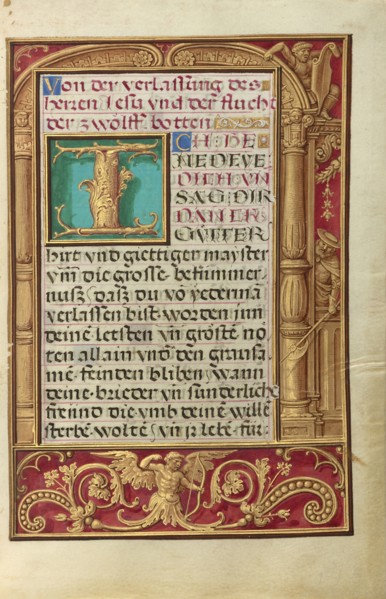 Von der verlassung des
herren Jesu vnd der flucht
der zwölff botten
ICH DE
NEDEVE
DICH VN
SAG DIR
DANCK
GVTTER
hirt vnd giettigen mayster
vm̄ die grosse bekummer
nusz dasz du vō yederman̄
verlassen bist worden jnn
deinē letsten vn̄ grōstē no
ten allain vnd den grausa
mē feinden bliben wann
deine brieder vn̄ sunderliche
freind die vmb deinē willē
sterbē woltē vn̄ jr lebē für